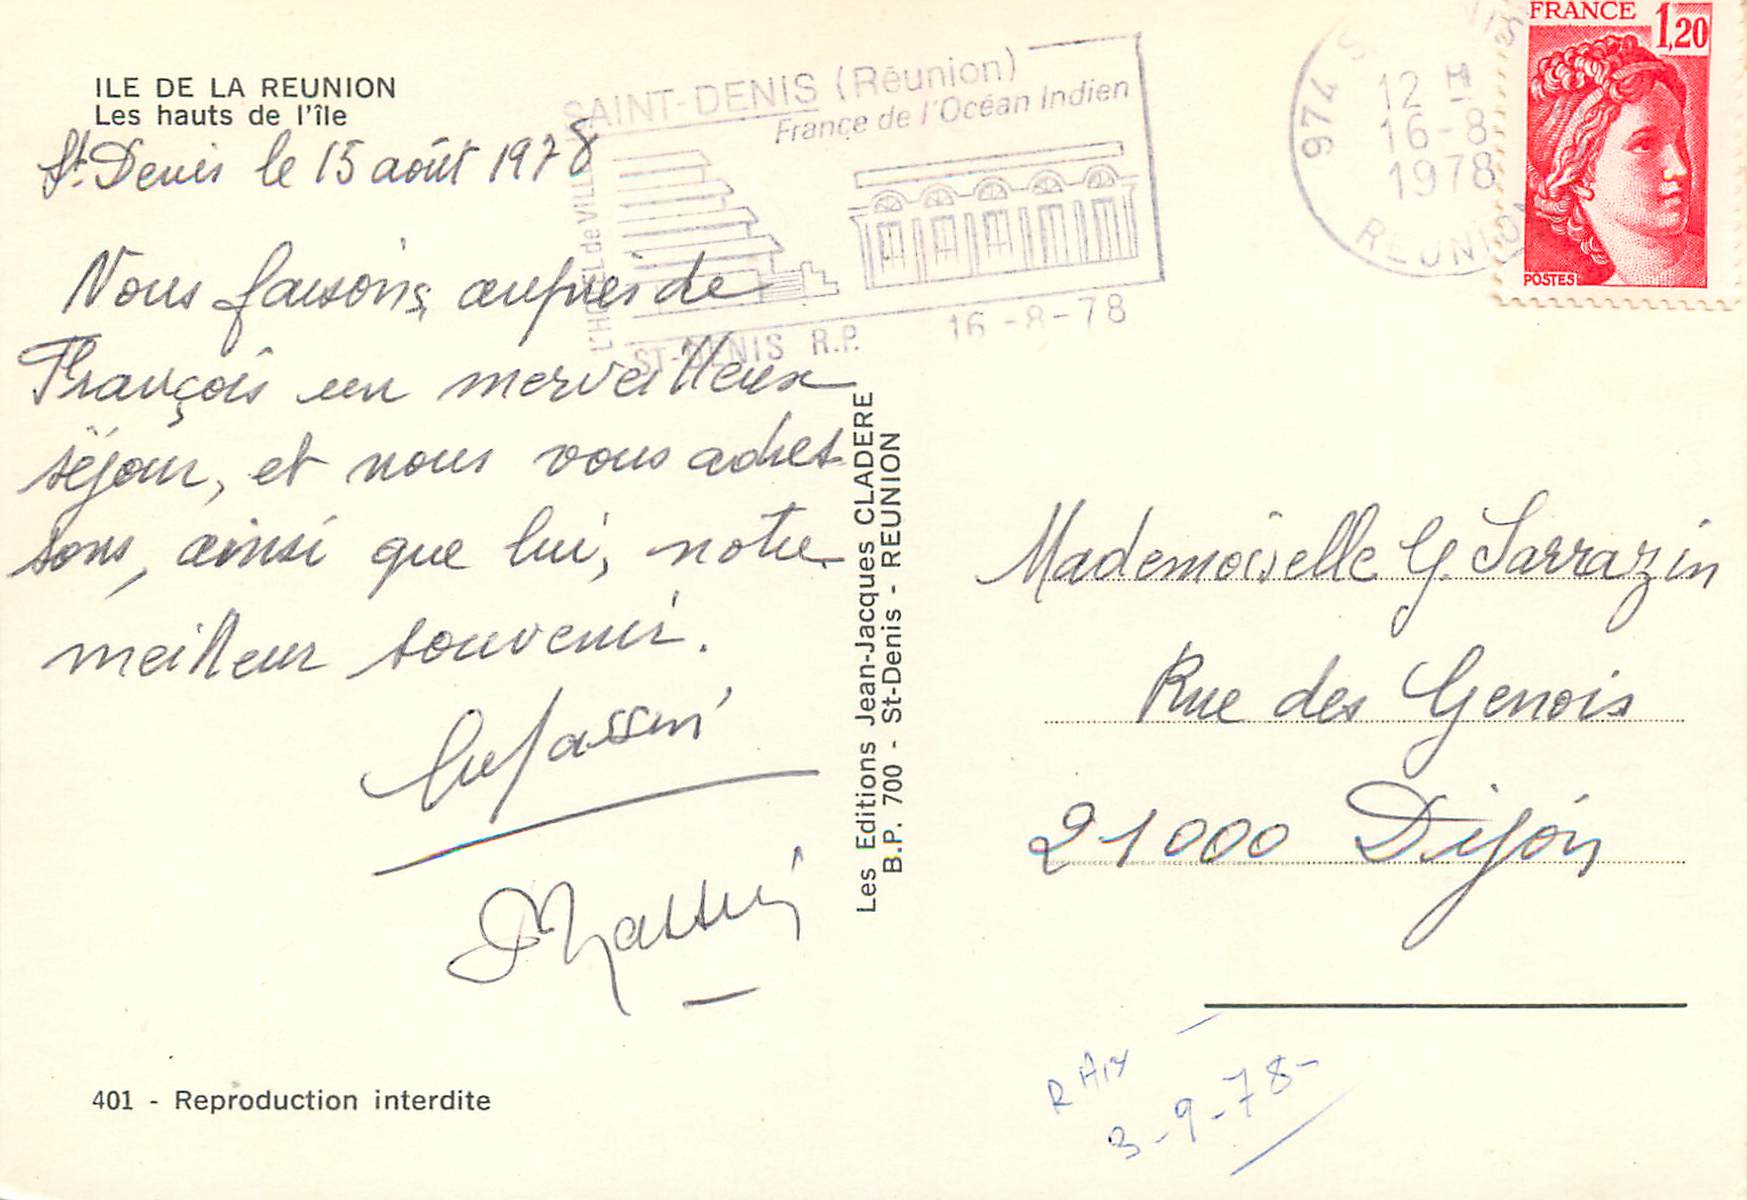 ILE DE LA REUNION
Les hauts de l'île
St. Denis le 15 août 1978
Nous faisons, auprès de
François un merveilleux
séjour, et nous vous adres-
sons, ainsi que lui, notre
meilleur souvenir.
401 - Reproduction interdite
Les Editions Jean-Jacques CLADERE
B.P. 700 - St-Denis - REUNION
SAINT-DENIS (Réunion)
France de l'Océan Indien
L'HOTEL de VILLE
ST-DENIS R.P. 16-8-78
974 REUNION
12 H
16-8
1978
FRANCE 1,20
POSTES
Mademoiselle G. Sarrazin
Rue des Genois
21000 Dijon
R Aix
3-9-78-